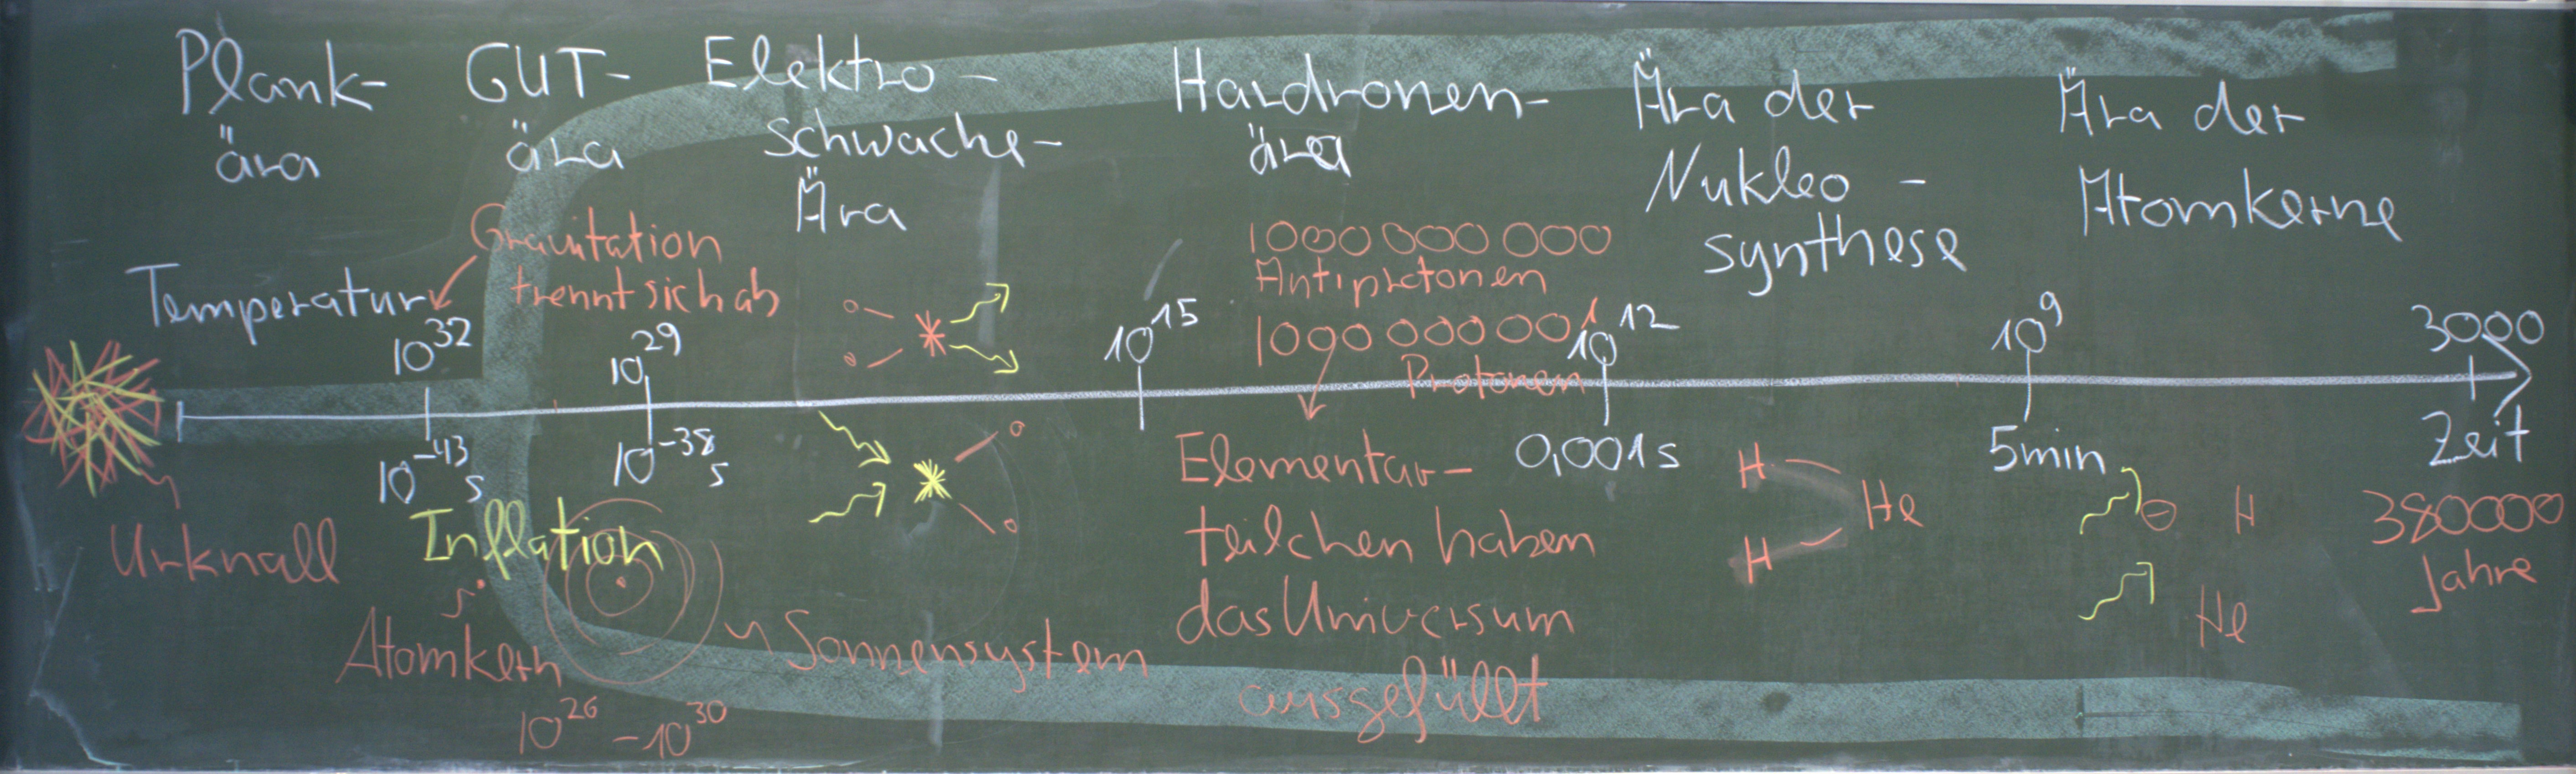 Plank-
ära
GUT-
ära
Elektro-
schwache-
Ära
Hardronen-
ära
Ära der
Nukleo-
synthese
Ära der
Atomkerne
Temperatur
Gravitation
trennt sich ab
10^32
10^29
10^15
1000 000 000
Antiprotonen
1000 000 001
Protonen
10^12
10^9
3000
10^-43 s
10^-38 s
0,001s
5min
Zeit
380000
Jahre
Urknall
Inflation
Atomkern
Sonnensystem
10^26 - 10^30
Elementar-
teilchen haben
das Universum
ausgefüllt
H
H
He
H
He